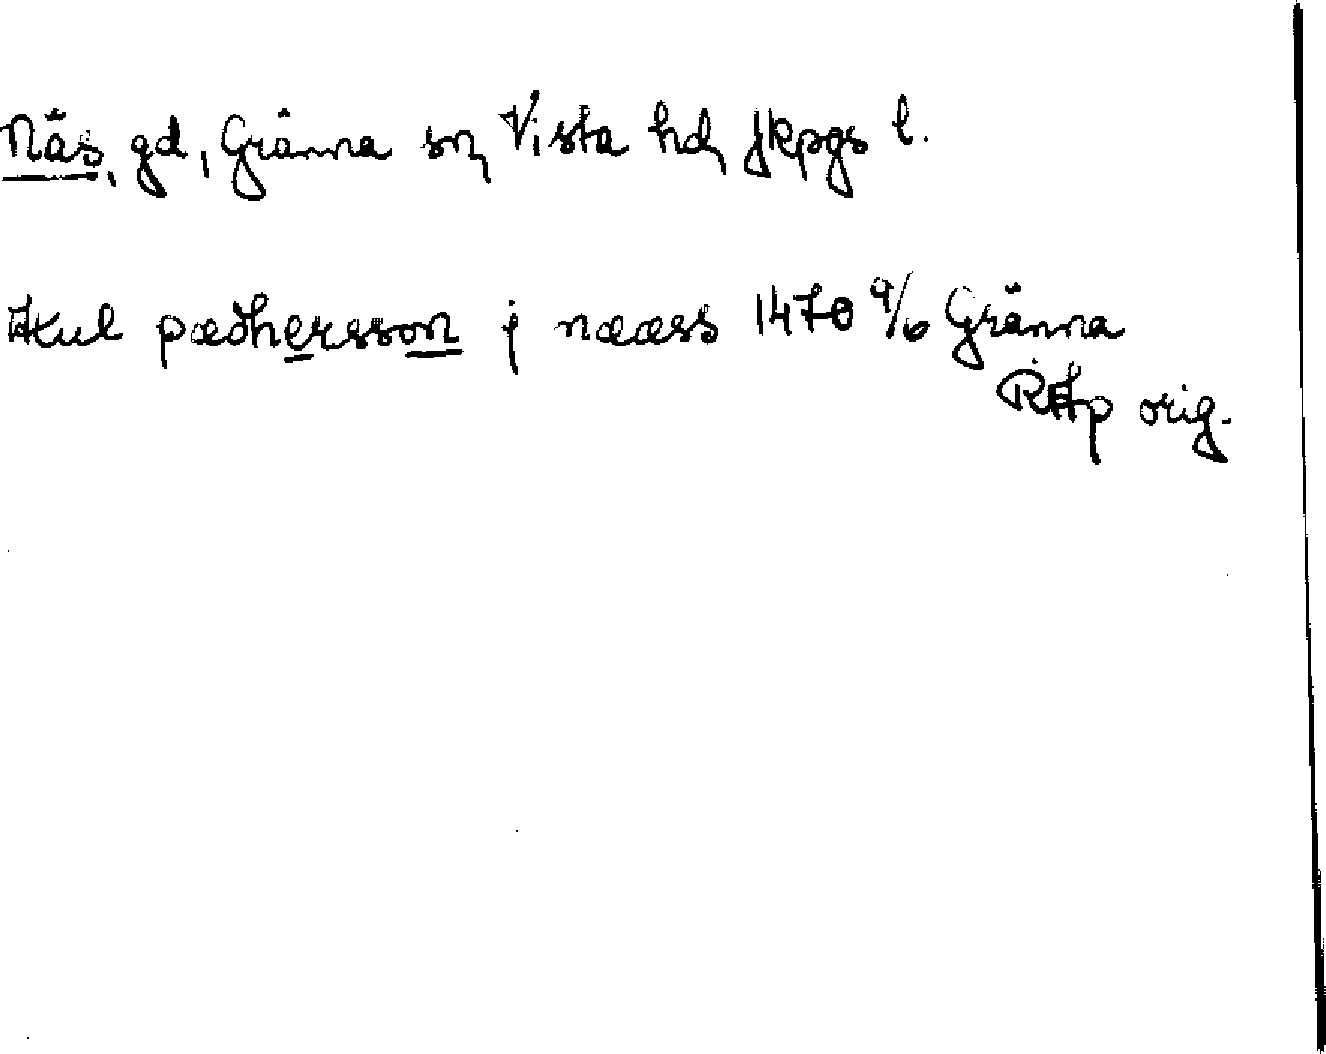 Näs, gd, Gränna sn, Vista hd, Jkpgs l.
pædhersson j næess 1470 9/6 Gränna
RAp orig.